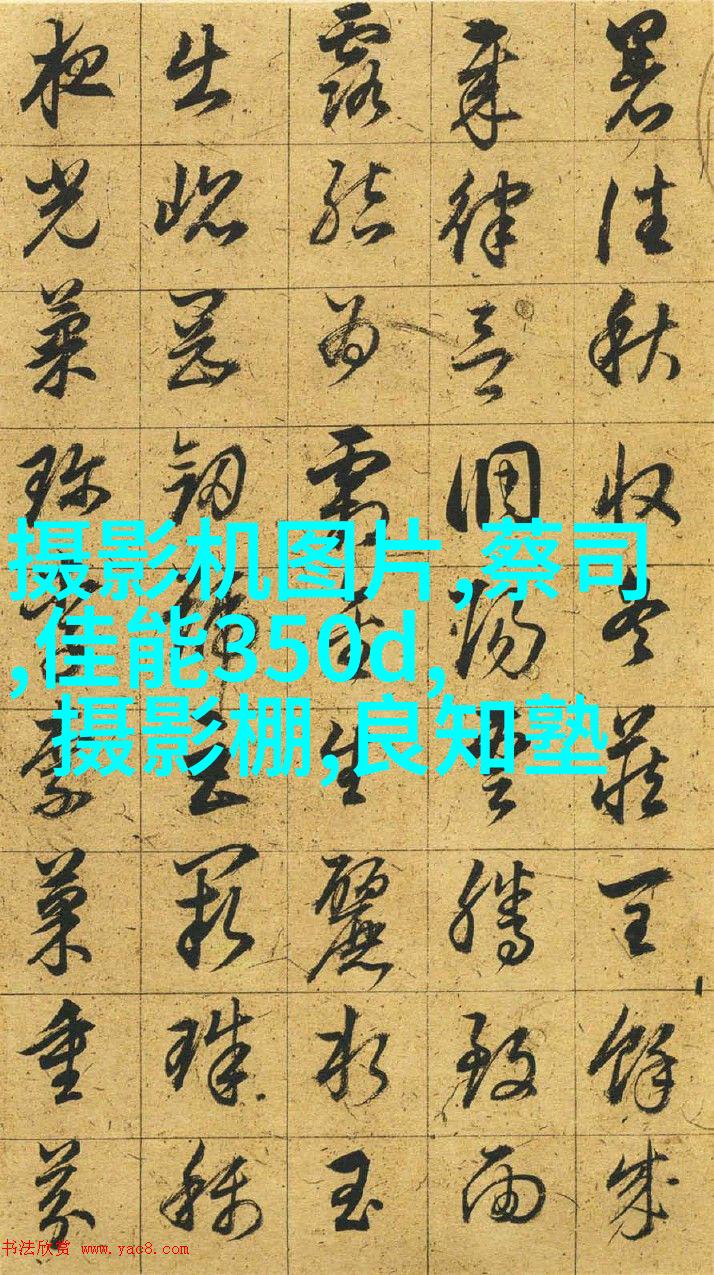 暑往秋收冬藏閏餘成
歲律呂調陽雲騰致雨
露結為霜金生麗水玉
出崐岡劒號巨闕珠稱
夜光菓珍李柰菜重芥
摄影机图片,蔡司
,佳能350d,
摄影棚,良知塾
书法欣赏 www.yac8.com